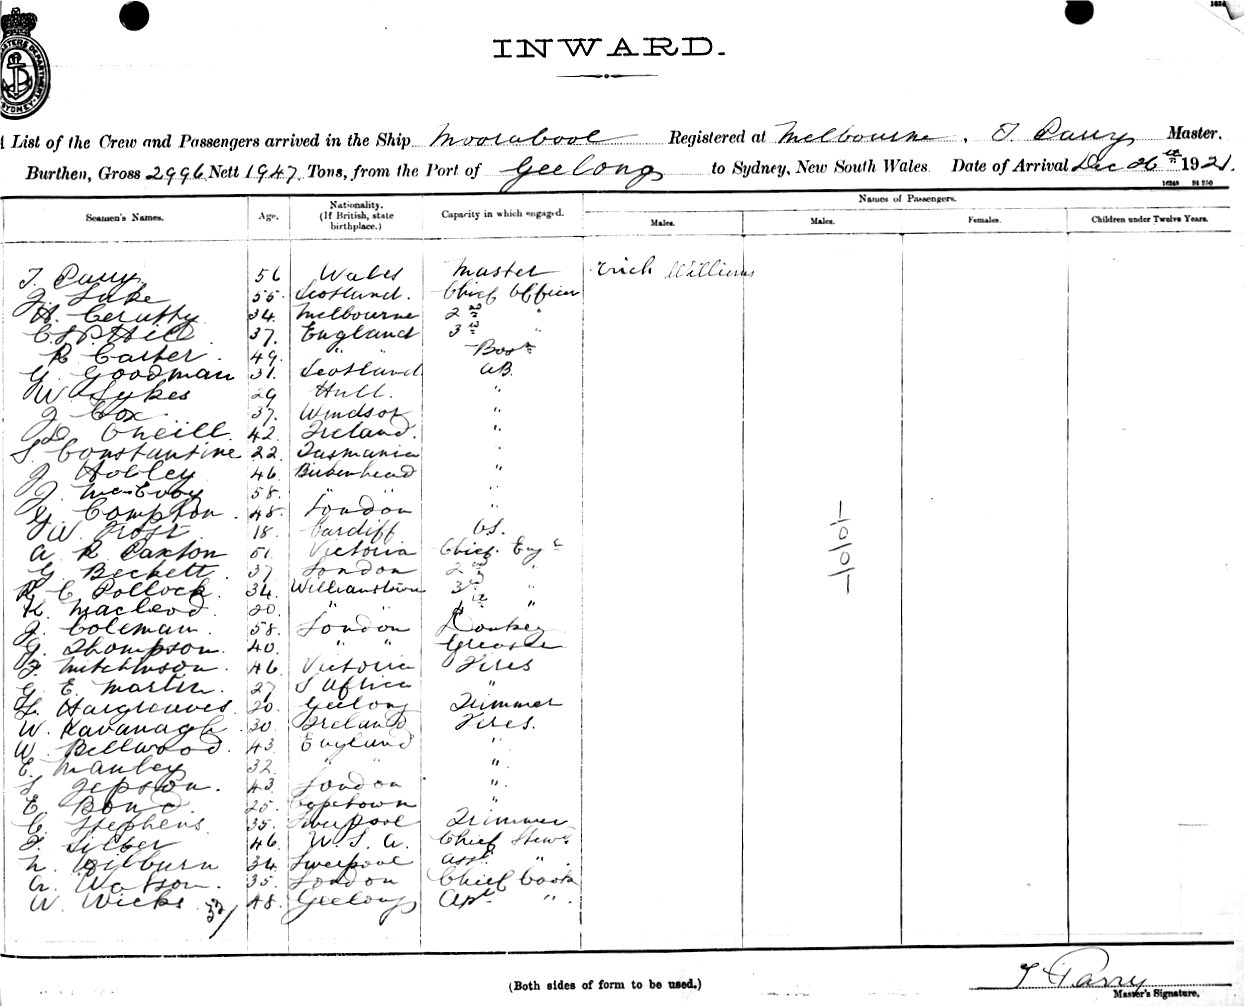 INWARD.
List of the Crew and Passengers arrived in the Ship Moorabool Registered at Melbourne, T Parry Master,
Burthen, Gross 2996 Nett 1947 Tons, from the Port of Geelong to Sydney, New South Wales Date of Arrival Dec 26th 1921.
Seamen's Names. Age. Nationality. (If British, state birthplace.) Capacity in which engaged. Names of Passengers.
Males. Males. Females. Children under Twelve Years.
T. Parry 56 Wales Master Erich Williams
J. Luke 55 Scotland. Chief Officer
H. Cerutty 34. Melbourne 2nd "
C S P Hill 37. England 3rd "
R Carter. 49. " " Bosn
G Goodman 31. Scotland AB.
W. Sykes 29 Hull. "
J Cox 37. Windsor "
D. Oneill. 42. Ireland. "
S Constantine 22. Tasmania "
J Hobley 46 Birkenhead "
J. McEvoy 58. " " "
G Compton. 48. London "
W. Frost 18. Cardiff OS.
A R Paxton 51 Victoria Chief. Engr
G. Beckett. 37 London 2nd "
R C Pollock. 34. Williamstown 3rd "
K. Macleod. 20. " " 4th "
J. Coleman. 58. London Donkey
G. Thompson. 40. " " Greaser
F. Mitchinson. 46. Victoria Fires
G E. Martin. 27 S Africa "
L. Hargreaves. 20. Geelong Trimmer
W. Kavanagh. 30. Ireland Fires.
W. Bellwood. 43 England "
E. Manley 32. " " "
S Jepson. 43. London "
E Bond. 25. Capetown "
C. Stephens 35. Liverpool Trimmer
T. Silber 46. U. S. A. Chief Stewd
N. Wilburn 34 Liverpool Asst. "
A. Watson. 35. London Chief Cook
W. Wicks 48. Geelong Apt. "
33/
T Parry
(Both sides of form to be used.) Master's Signature,